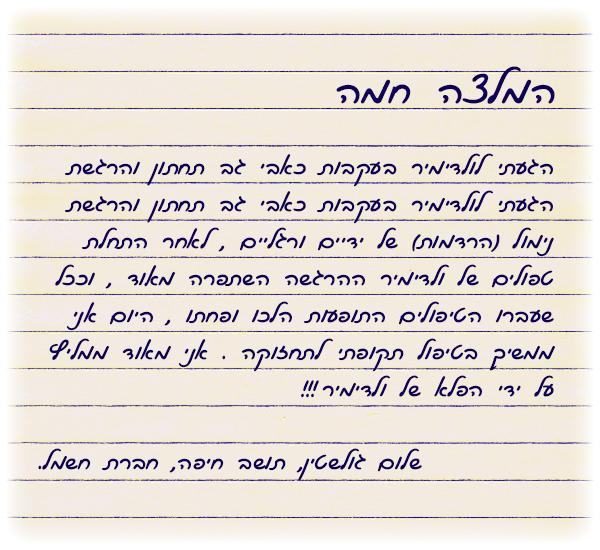 המלצה חמה
הגעתי לולדימיר בעקבות כאבי גב תחתון והרגשת
הגעתי לולדימיר בעקבות כאבי גב תחתון והרגשת
נימול (הרדמות) של ידיים ורגליים , לאחר התחלת
טפולים של ולדימיר ההרגשה השתפרה מאוד , וככל
שעברו הטיפולים התופעות הלכו ופחתו , היום אני
ממשיך בטיפול תקופתי לתחזוקה . אני מאוד ממליץ
על ידי הפלא של ולדימיר!!!
שלום גולשטין, תושב חיפה, חברת חשמל.